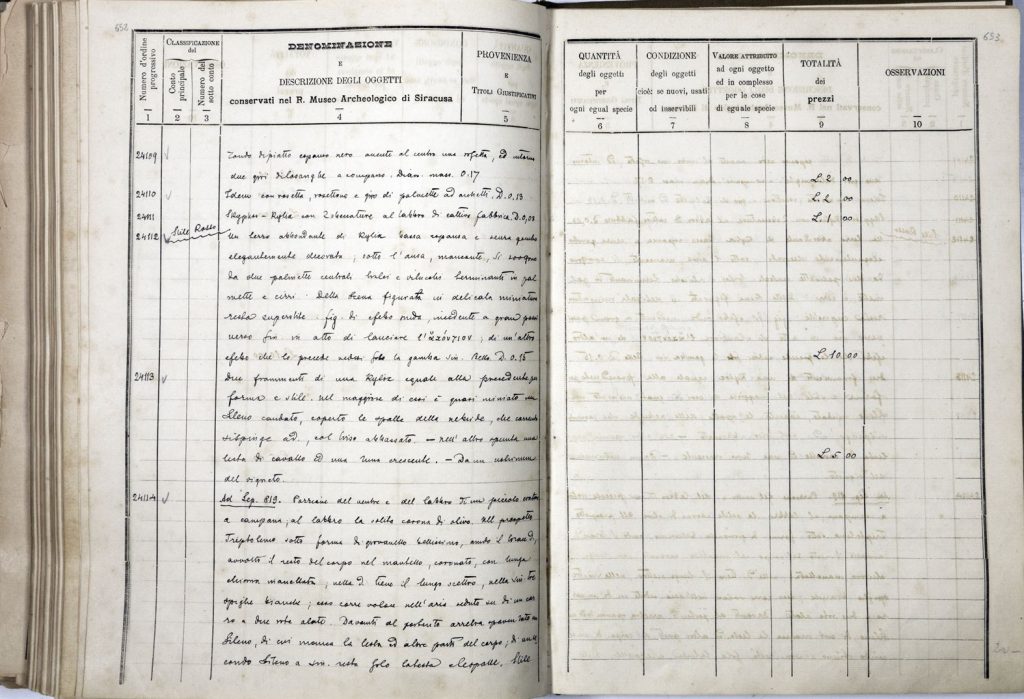 652
Numero d'ordine progressivo
1
CLASSIFICAZIONE del
Conto principale
2
Numero del sotto conto
3
DENOMINAZIONE
E
DESCRIZIONE DEGLI OGGETTI
conservati nel R. Museo Archeologico di Siracusa
4
PROVENIENZA
E
TITOLI GIUSTIFICATIVI
5
24109
Tondo di piatto campano nero avente al centro una rosetta, ed intorno
due giri di losanghe a compasso. Diam. mass. 0.17
24110
Idem con rosetta, rosettone e giro di palmette ad archetti. D. 0,13
24111
Skyphos-Kylix con 2 sbavature al labbro di cattiva fabbrica. D. 0,08
24112 Stile Rosso
Un terzo abbondante di Kylix bassa espansa e senza gambo
elegantemente decorata; sotto l'ansa, mancante, si svolgono
da due palmette centrali tralci e volute terminanti in pal
mette e cirri. Della scena figurata in delicata miniatura
resta superstite: fig. di efebo nudo incedente a gran passi
verso sin. in atto di lanciare l'ἀκόντιον; di un altro
efebo che lo precede vedesi solo la gamba sin. Bello D. 0.15
24113
Due frammenti di una Kylix eguale alla precedente per
forma e stile. Nel maggiore di essi è quasi intero un
Sileno caudato, coperto le spalle della nebride, che
col viso abbassato. — nell'altro spunta una
testa di cavallo ed una luna crescente. — Da un
del vigneto.
24114
Ad Sep. 813. Porzione del ventre e del labbro di un piccolo cratere
a campana; al labbro la solita corona di olivo. Nel prospetto
Treptolemo sotto forma di giovanetto bellissimo, nudo il torace,
avvolto il resto del corpo nel mantello, coronato, con lunga
chioma inanellata, nella d. tiene il lungo scettro, nella sin. tre
spighe bianche; esso corre volando nell'aria seduto su di un car
ro a due rote alate. Davanti al portento arretra spaventato un
Sileno, di cui manca la testa ed altre parti del corpo; di un se
condo Sileno a sin. resta solo la testa e le spalle. Stile
653
QUANTITÀ
degli oggetti
per
ogni egual specie
6
CONDIZIONE
degli oggetti
cioè: se nuovi, usati
od inservibili
7
VALORE ATTRIBUITO
ad ogni oggetto
ed in complesso
per le cose
di eguale specie
8
TOTALITÀ
dei
prezzi
9
OSSERVAZIONI
10
L. 2 00
L. 2 00
L. 1 00
L. 10 00
L. 5 00